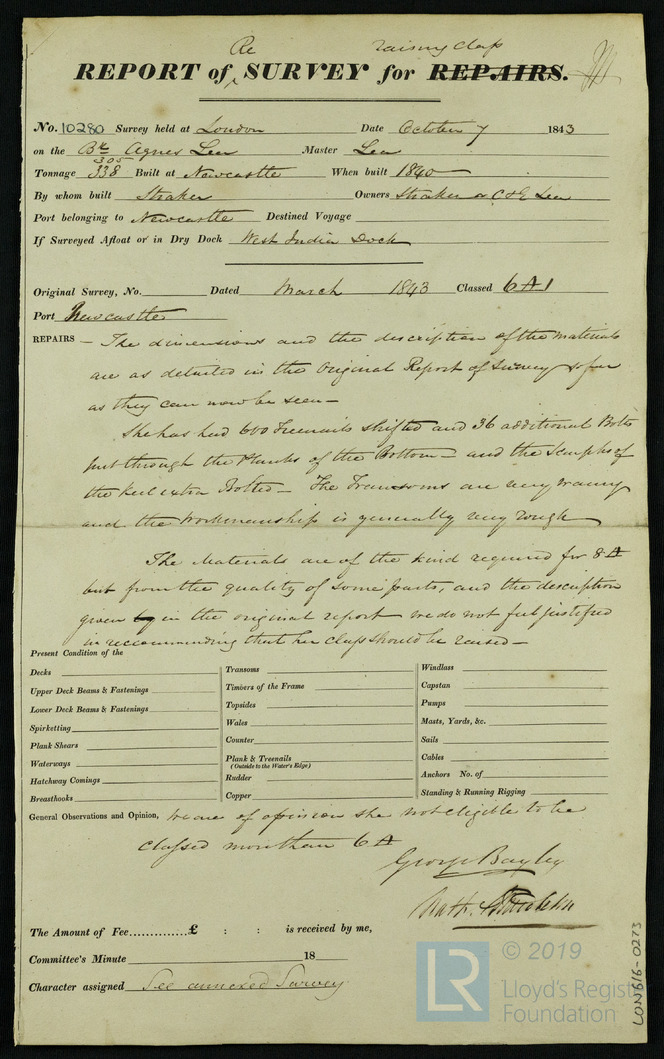 Re raising Class
REPORT of ^ SURVEY for REPAIRS.
No. 10280 Survey held at London Date October 7 1843
on the Bk Agnes Lea Master Lea
305
Tonnage 338 Built at Newcastle When built 1840
By whom built Straker Owners Straker & C & E Lea
Port belonging to Newcastle Destined Voyage
If Surveyed Afloat or in Dry Dock West India Dock
Original Survey, No. Dated March 1843 Classed 6 A 1
Port Newcastle
REPAIRS – The dimensions and the description of the Materials
are as detailed in the Original Report of Survey so far
as they can now be seen –
She has had 600 Treenails shifted and 36 additional Bolts
put through the Planks of the Bottom – and the Scarphs of
the Keel extra Bolted – The Transoms are very waney
and the Workmanship is generally very rough
The Materials are of the kind required for 8 A
but from the quality of some parts, and the description
given by in the original report we do not feel justified
in recommending that her class should be raised –
Present Condition of the
Decks
Upper Deck Beams & Fastenings
Lower Deck Beams & Fastenings
Spirketting
Plank Shears
Waterways
Hatchway Comings
Breasthooks
Transoms
Timbers of the Frame
Topsides
Wales
Counter
Plank & Treenails
(Outside to the Water's Edge)
Rudder
Copper
Windlass
Capstan
Pumps
Masts, Yards, &c.
Sails
Cables
Anchors No. of
Standing & Running Rigging
General Observations and Opinion, we are of opinion she not eligible to be
classed more than 6 A
George Bayley
Nath.
The Amount of Fee..............£ : : is received by me,
Committee's Minute 18
Character assigned See annexed Survey
LR © 2019
Lloyd's Register
Foundation
LON616-0273